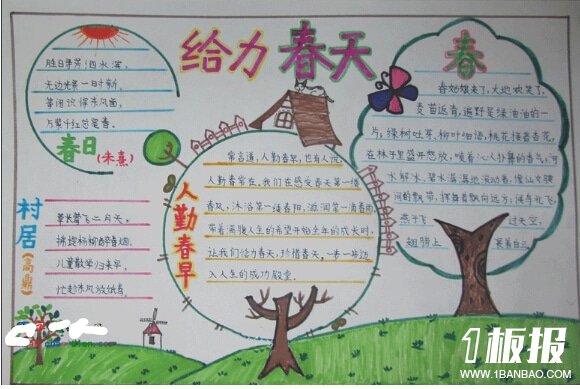 给力春天
胜日寻芳泗水滨，
无边光景一时新。
等闲识得东风面，
万紫千红总是春。
春日
(朱熹)
村居
(高鼎)
草长莺飞二月天，
拂堤杨柳醉春烟。
儿童散学归来早，
忙趁东风放纸鸢。
人勤春早
常言道，人勤春早，也有人说，
人勤春常在，我们在感受春天第一缕
春风，沐浴第一缕春阳，滋润第一滴春雨，
带着满腹人生的希望开始全年的成长时，
让我们给力春天，珍惜春天，一步一步迈
入人生的成功殿堂。
春
春姑娘来了，大地欢笑了。
麦苗返青，遍野是绿油油的一
片；绿树吐芽，柳叶细语，桃花接着杏花，
在林子里盛开怒放，喷着沁人肺腑的香气，河
水解冰，碧水温温地滚动着，像仙女腰
间的飘带，挥舞着飘向远方；
燕子飞
过天空，
翅膀上
裹着白云
1板报
WWW.1BANBAO.COM